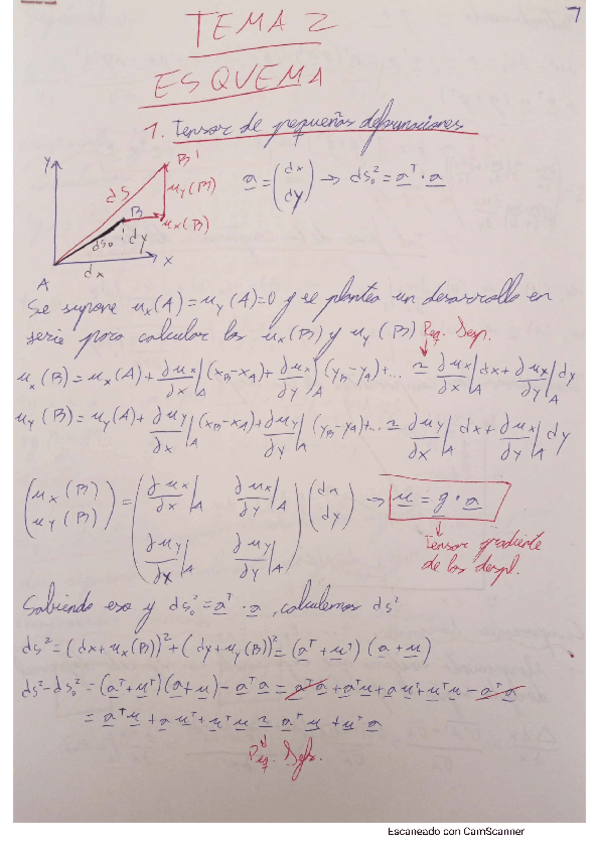 7
TEMA 2
ESQUEMA
1. Tensor de pequeñas deformaciones
Y B' dS u_y(B) B u_x(B) dS₀ dy dx A x
a = (dx dy) → dS₀² = aᵀ · a
Se supone u_x(A) = u_y(A) = 0 y se plantea un desarrollo en
serie para calcular los u_x(B) y u_y(B) Peq. Desp.
u_x(B) = u_x(A) + ∂u_x/∂x|_A (x_B - x_A) + ∂u_x/∂y|_A (y_B - y_A) + ... ≃ ∂u_x/∂x|_A dx + ∂u_x/∂y|_A dy
u_y(B) = u_y(A) + ∂u_y/∂x|_A (x_B - x_A) + ∂u_y/∂y|_A (y_B - y_A) + ... ≃ ∂u_y/∂x|_A dx + ∂u_y/∂y|_A dy
(u_x(B) u_y(B)) = (∂u_x/∂x|_A ∂u_x/∂y|_A ∂u_y/∂x|_A ∂u_y/∂y|_A) (dx dy) → u = g · a
Tensor gradiente
de los despl.
Sabiendo eso y dS₀² = aᵀ · a, calculemos dS²
dS² = (dx + u_x(B))² + (dy + u_y(B))² = (aᵀ + uᵀ) (a + u)
dS² - dS₀² = (aᵀ + uᵀ)(a + u) - aᵀa = aᵀa + aᵀu + auᵀ + uᵀu - aᵀa
= aᵀu + auᵀ + uᵀu ≃ aᵀu + uᵀa
Peq. Defs.
Escaneado con CamScanner